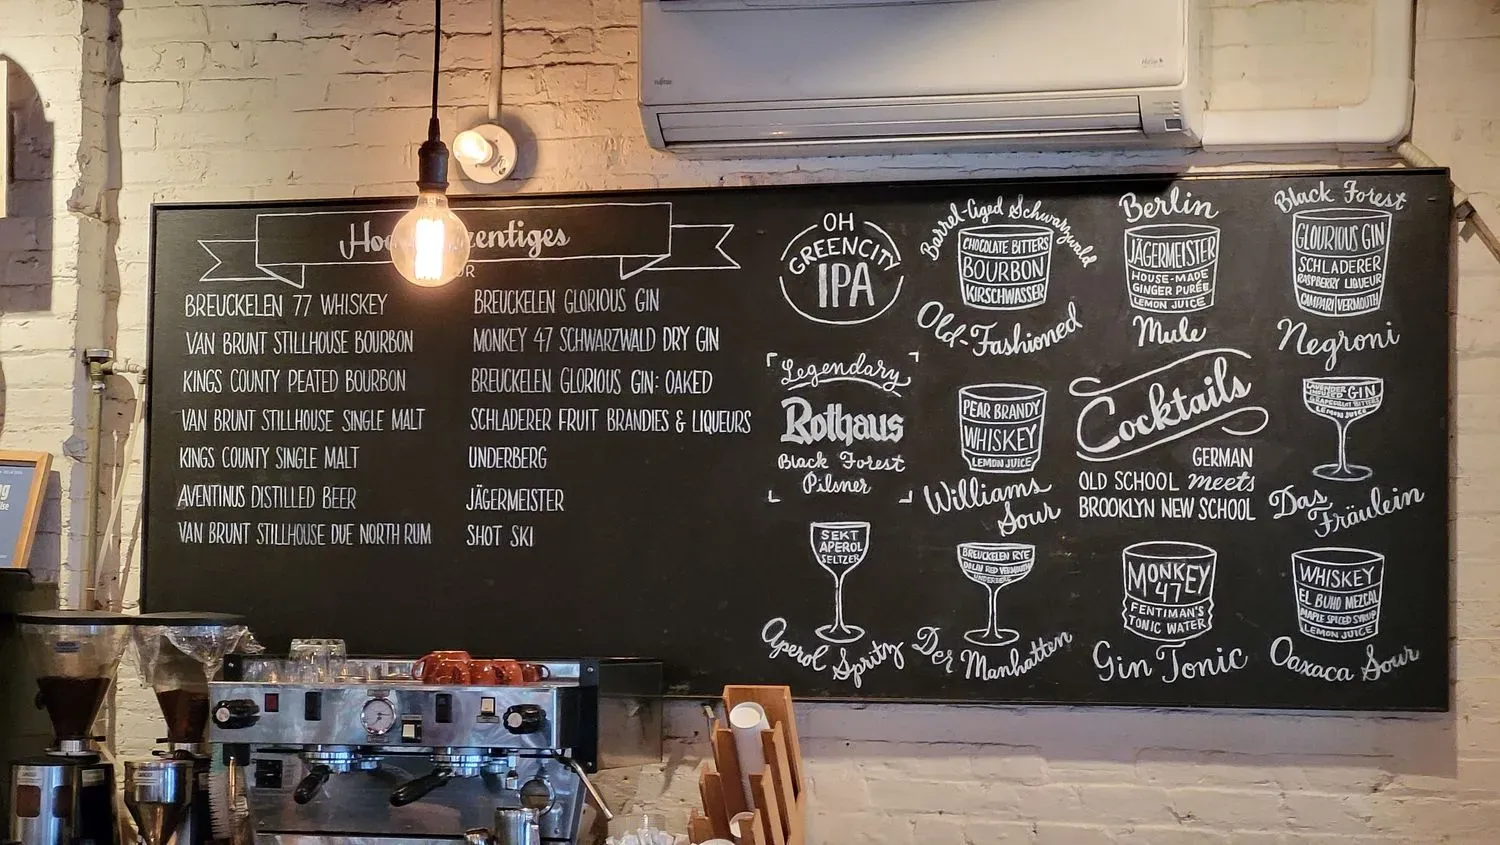 BREUCKELEN 77 WHISKEY
VAN BRUNT STILLHOUSE BOURBON
KINGS COUNTY PEATED BOURBON
VAN BRUNT STILLHOUSE SINGLE MALT
KINGS COUNTY SINGLE MALT
AVENTINUS DISTILLED BEER
VAN BRUNT STILLHOUSE DUE NORTH RUM
BREUCKELEN GLORIOUS GIN
MONKEY 47 SCHWARZWALD DRY GIN
BREUCKELEN GLORIOUS GIN: OAKED
SCHLADERER FRUIT BRANDIES & LIQUEURS
UNDERBERG
JÄGERMEISTER
SHOT SKI
OH
GREENCITY
IPA
Legendary
Rothaus
Black Forest
Pilsner
SEKT
APEROL
SELTZER
Aperol Spritz
Barrel-Aged Schwarzwald
CHOCOLATE BITTERS
BOURBON
KIRSCHWASSER
Old-Fashioned
PEAR BRANDY
WHISKEY
LEMON JUICE
Williams
Sour
BREUCKELEN RYE
DOLIN RED VERMOUTH
UNDERBERG
Der Manhatten
Berlin
JÄGERMEISTER
HOUSE-MADE
GINGER PURÉE
LEMON JUICE
Mule
Cocktails
GERMAN
OLD SCHOOL meets
BROOKLYN NEW SCHOOL
MONKEY
47
FENTIMAN'S
TONIC WATER
Gin Tonic
Black Forest
GLOURIOUS GIN
SCHLADERER
RASPBERRY LIQUEUR
CAMPARI VERMOUTH
Negroni
LAVENDER
INFUSED GIN
GRAPEFRUIT BITTERS
LEMON JUICE
Das
Fräulein
WHISKEY
EL BUHO MEZCAL
MAPLE SPICED SYRUP
LEMON JUICE
Oaxaca Sour